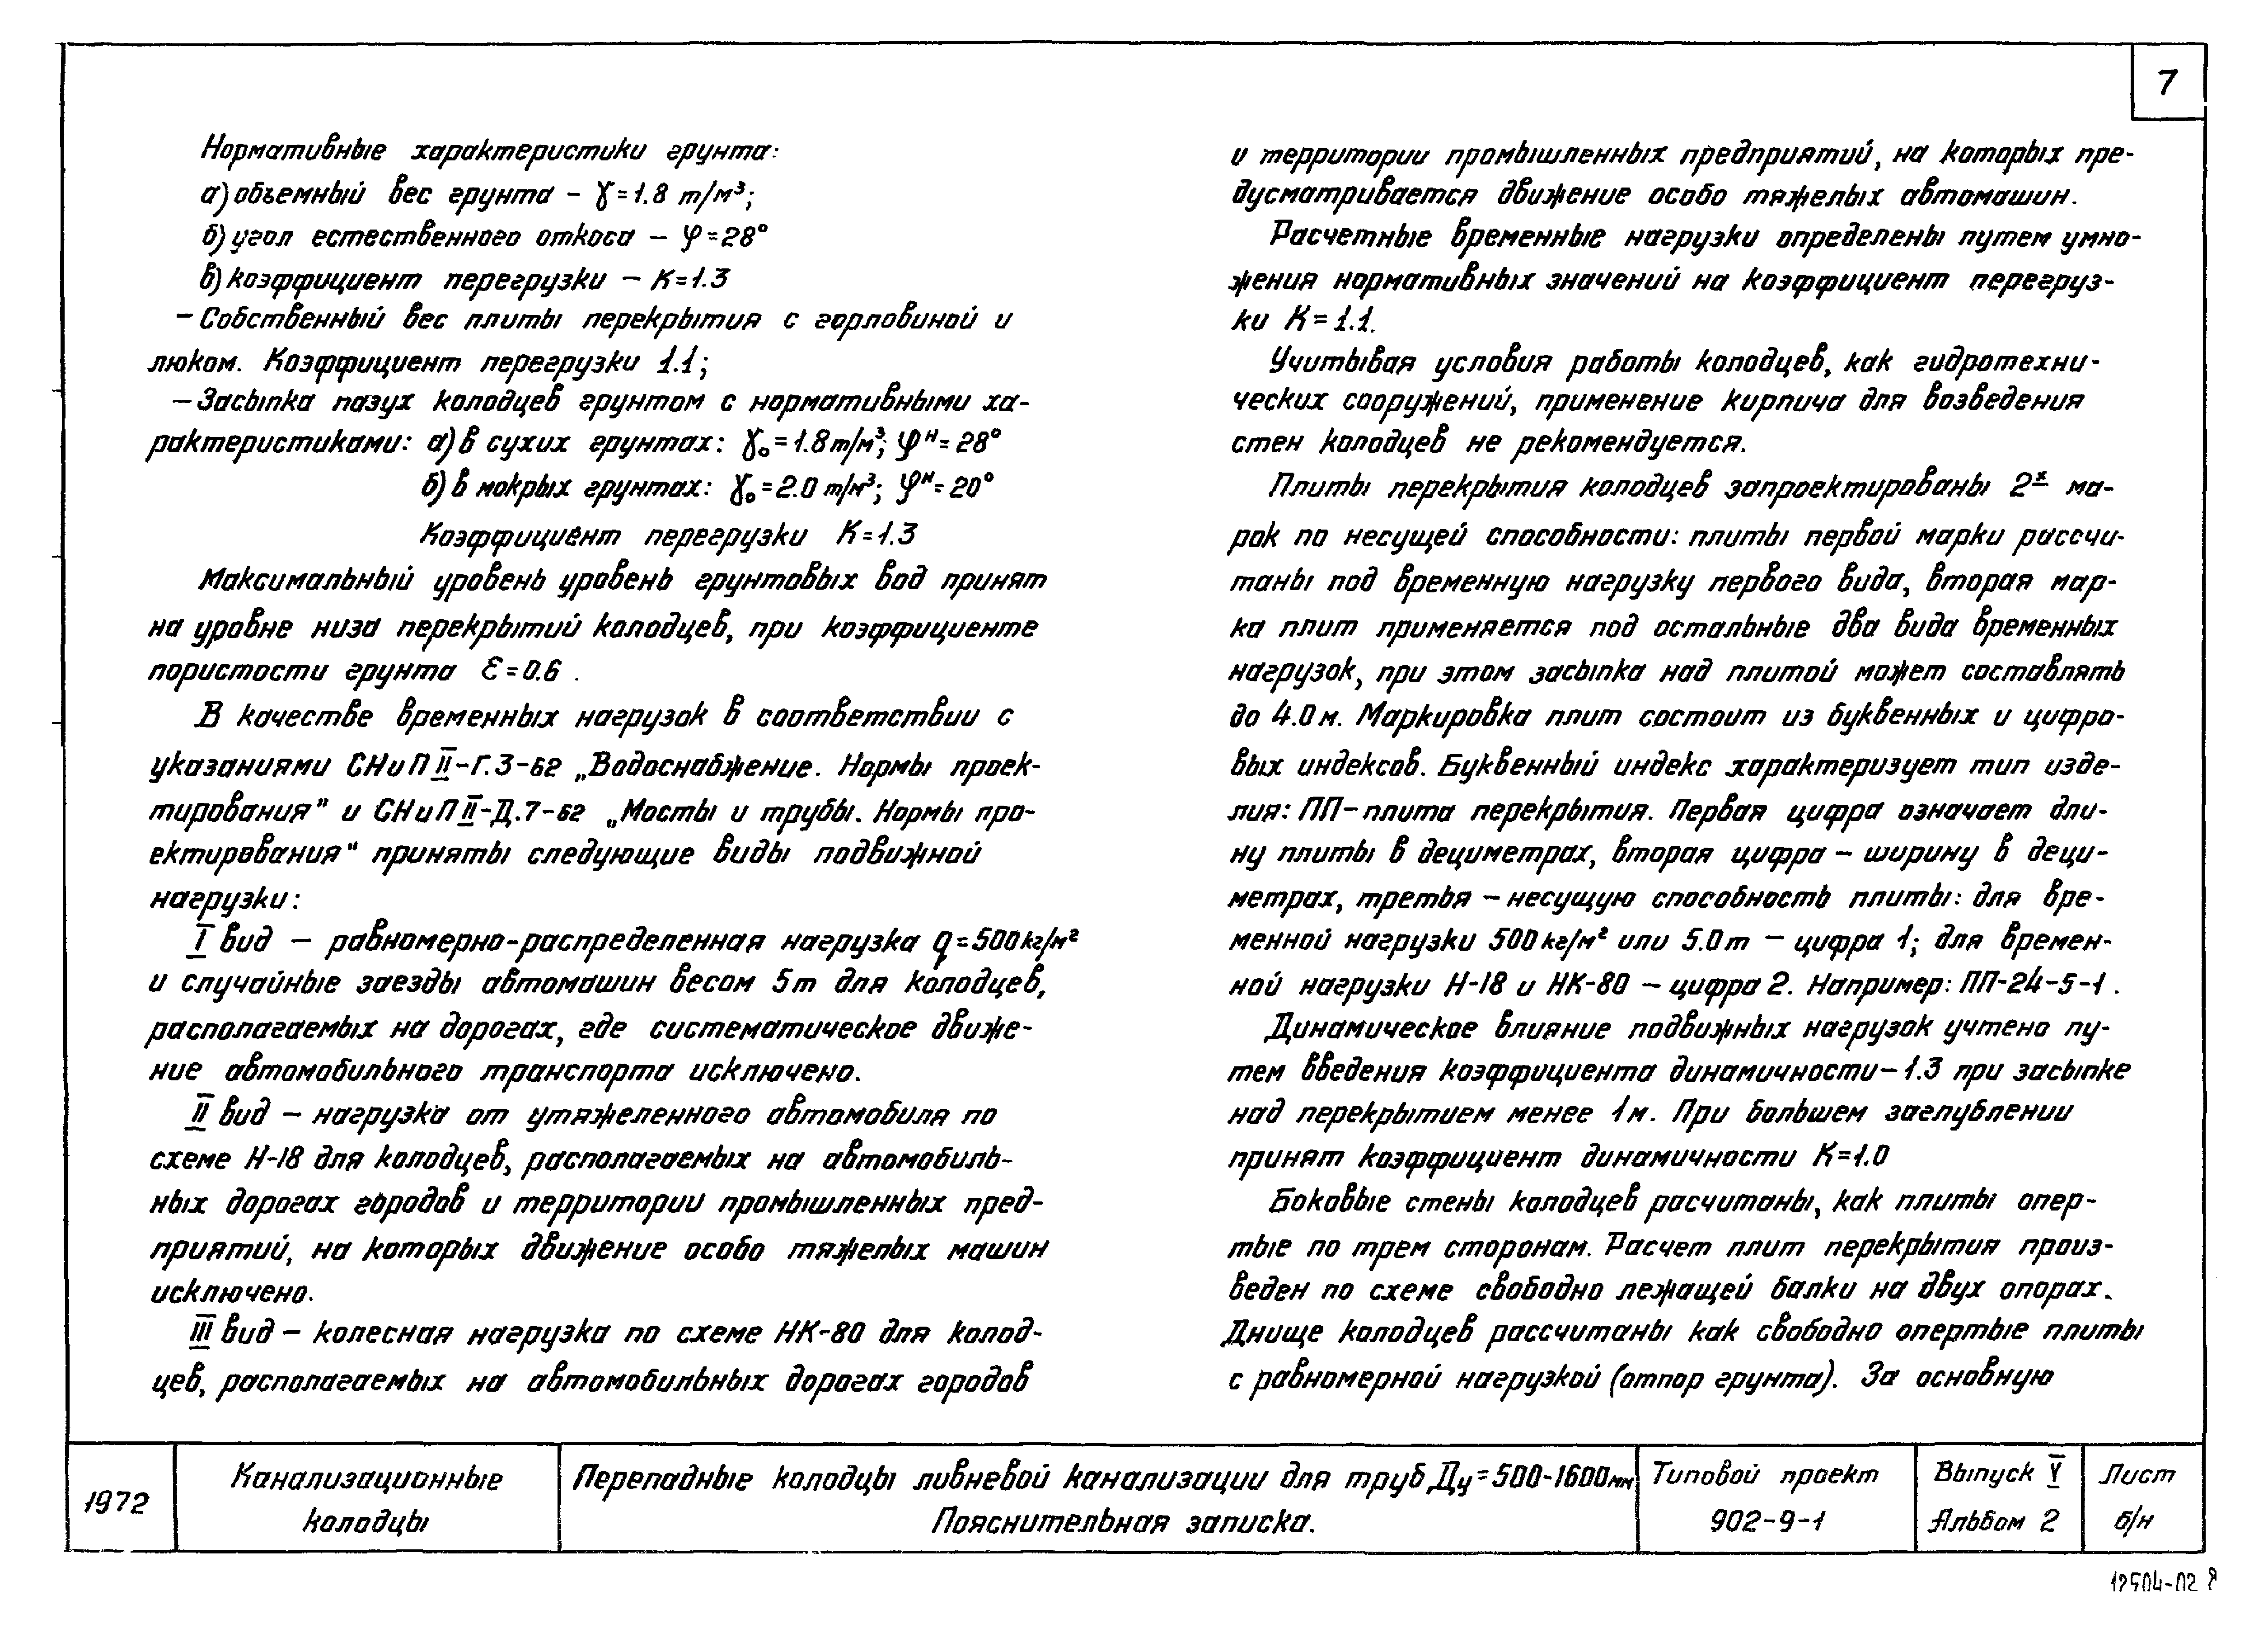 7
Нормативные характеристики грунта:
а) объемный вес грунта – γ=1.8 т/м³;
б) угол естественного откоса – φ=28°
в) коэффициент перегрузки – К=1.3
– Собственный вес плиты перекрытия с горловиной и
люком. Коэффициент перегрузки 1.1;
– Засыпка пазух колодцев грунтом с нормативными ха-
рактеристиками: а) в сухих грунтах: γ₀=1.8т/м³; φᴴ=28°
б) в мокрых грунтах: γ₀=2.0 т/м³; φᴴ=20°
Коэффициент перегрузки К=1.3
Максимальный уровень уровень грунтовых вод принят
на уровне низа перекрытий колодцев, при коэффициенте
пористости грунта ε=0.6 .
В качестве временных нагрузок в соответствии с
указаниями СНиП II-Г.3-62 „Водоснабжение. Нормы проек-
тирования" и СНиП II-Д.7-62 „Мосты и трубы. Нормы про-
ектирования" приняты следующие виды подвижной
нагрузки:
I вид – равномерно-распределенная нагрузка q=500кг/м²
и случайные заезды автомашин весом 5т для колодцев,
располагаемых на дорогах, где систематическое движе-
ние автомобильного транспорта исключено.
II вид – нагрузка от утяжеленного автомобиля по
схеме Н-18 для колодцев, располагаемых на автомобиль-
ных дорогах городов и территории промышленных пред-
приятий, на которых движение особо тяжелых машин
исключено.
III вид – колесная нагрузка по схеме НК-80 для колод-
цев, располагаемых на автомобильных дорогах городов
и территории промышленных предприятий, на которых пре-
дусматривается движение особо тяжелых автомашин.
Расчетные временные нагрузки определены путем умно-
жения нормативных значений на коэффициент перегруз-
ки К=1.1.
Учитывая условия работы колодцев, как гидротехни-
ческих сооружений, применение кирпича для возведения
стен колодцев не рекомендуется.
Плиты перекрытия колодцев запроектированы 2ˣ ма-
рок по несущей способности: плиты первой марки рассчи-
таны под временную нагрузку первого вида, вторая мар-
ка плит применяется под остальные два вида временных
нагрузок, при этом засыпка над плитой может составлять
до 4.0м. Маркировка плит состоит из буквенных и цифро-
вых индексов. Буквенный индекс характеризует тип изде-
лия: ПП-плита перекрытия. Первая цифра означает дли-
ну плиты в дециметрах, вторая цифра – ширину в деци-
метрах, третья – несущую способность плиты: для вре-
менной нагрузки 500кг/м² или 5.0т – цифра 1; для времен-
ной нагрузки Н-18 и НК-80 – цифра 2. Например: ПП-24-5-1 .
Динамическое влияние подвижных нагрузок учтено пу-
тем введения коэффициента динамичности-1.3 при засыпке
над перекрытием менее 1м. При большем заглублении
принят коэффициент динамичности К=1.0
Боковые стены колодцев расчитаны, как плиты опер-
тые по трем сторонам. Расчет плит перекрытия произ-
веден по схеме свободно лежащей балки на двух опорах.
Днище колодцев рассчитаны как свободно опертые плиты
с равномерной нагрузкой (отпор грунта). За основную
1972
Канализационные
колодцы
Перепадные колодцы ливневой канализации для труб Ду=500-1600мм
Пояснительная записка.
Типовой проект
902-9-1
Выпуск V
Альбом 2
Лист
б/н
12504-02 8